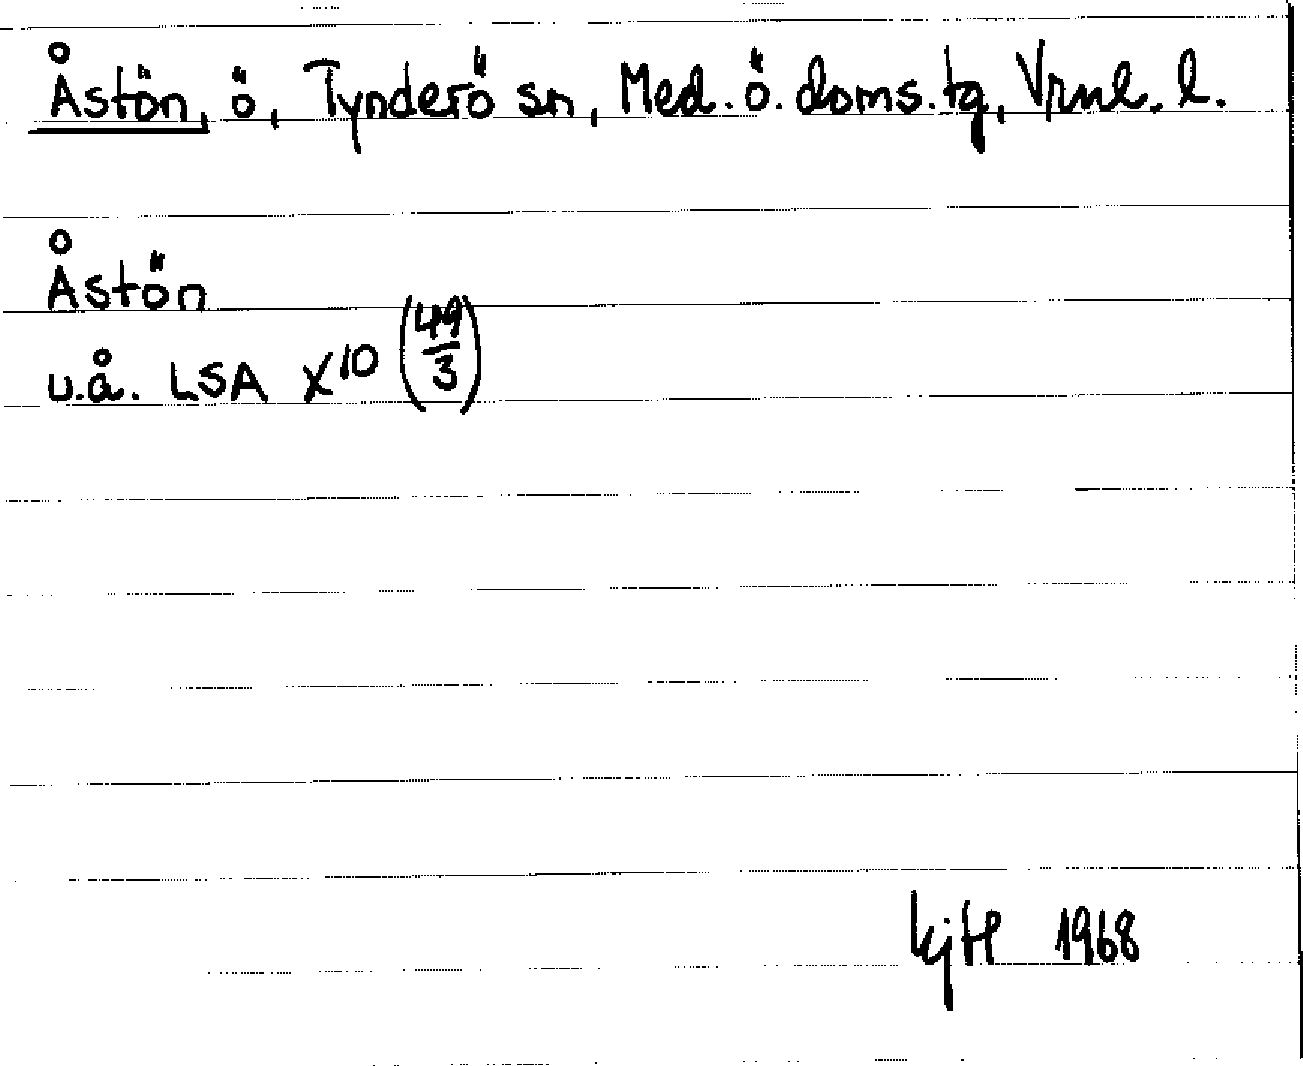 Åstön, ö, Tynderö sn, Med. ö. doms. tg, Vrnl. l.
Åstön
u.å. LSA X10 (49/3)
KjH 1968